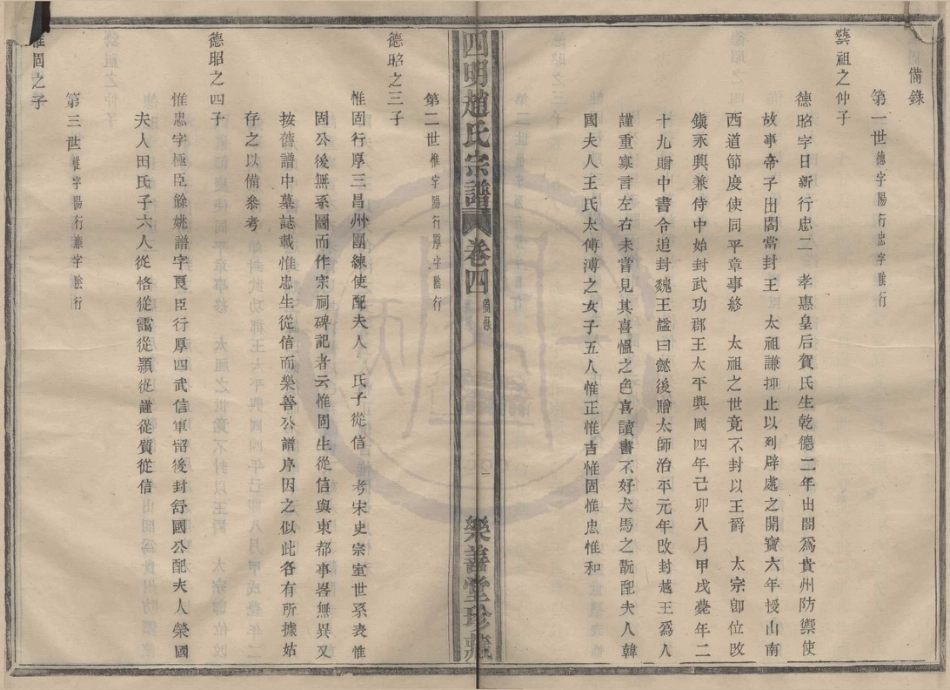 備錄
第一世德字陽行忠字陰行
藝祖之仲子
德昭字日新行忠二　孝惠皇后賀氏生乾德二年出閤為貴州防禦使
故事帝子出閤當封王　太祖謙抑止以列辟處之開寶六年授山南
西道節度使同平章事終　太祖之世竟不封以王爵　太宗卽位改
鎭永興兼侍中始封武功郡王太平興國四年己卯八月甲戌薨年二
十九贈中書令追封魏王諡曰懿後贈太師治平元年改封越王為人
謹重寡言左右未嘗見其喜慍之色喜讀書不好犬馬之翫配夫人韓
國夫人王氏太傅溥之女子五人惟正惟吉惟固惟忠惟和
四明趙氏宗譜 卷四 備錄 樂善堂珍藏
第二世惟字陽行厚字陰行
德昭之三子
惟固行厚三昌州團練使配夫人　氏子從信　考宋史宗室世系表惟
固公後無系圖而作宗祠碑記者云惟固生從信與東都事畧無異又
按舊譜中墓誌載惟忠生從信而樂善公譜序因之似此各有所據姑
存之以備叅考
德昭之四子
惟忠字極臣餘姚譜字良臣行厚四武信軍留後封舒國公配夫人榮國
夫人田氏子六人從恪從藹從穎從謹從質從信
第三世從字陽行謙字陰行
惟固之子